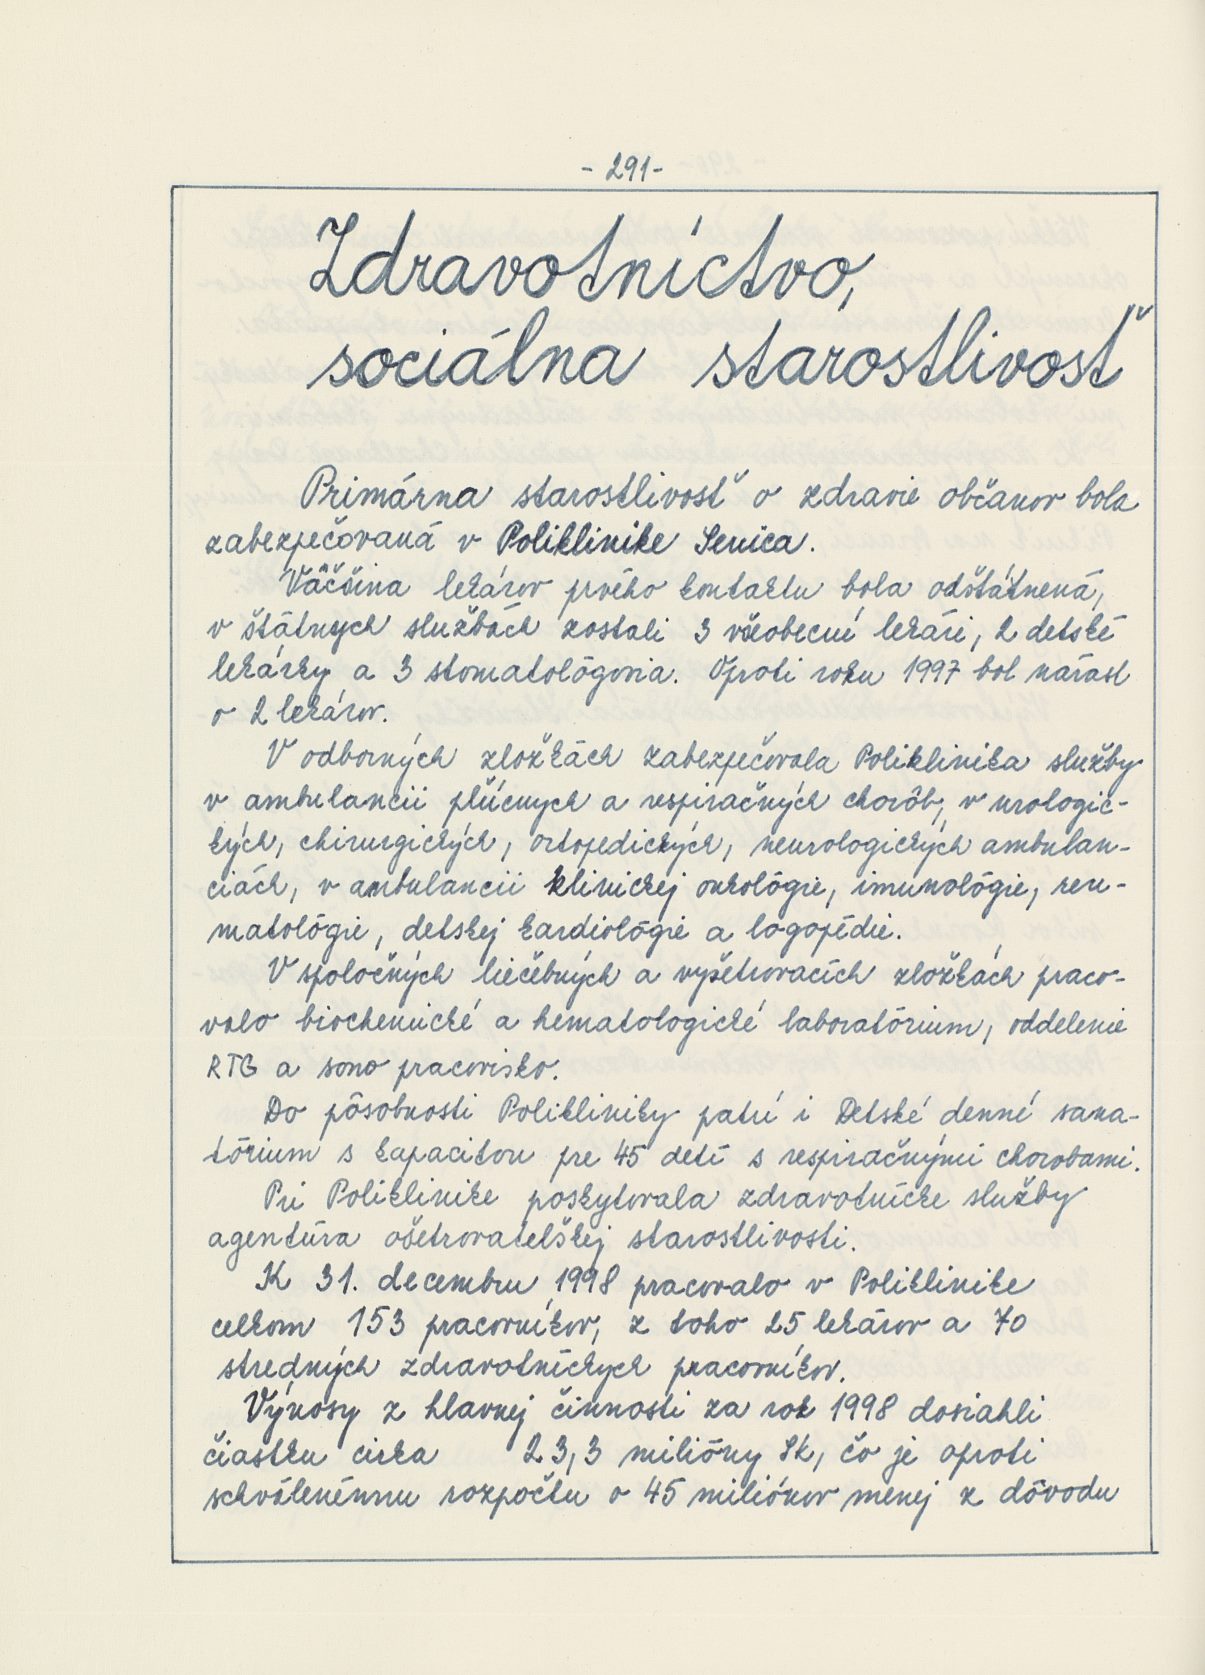 - 291 -
Zdravotníctvo,
sociálna starostlivosť
Primárna starostlivosť o zdravie občanov bola
zabezpečovaná v Poliklinike Senica.
Väčšina lekárov prvého kontaktu bola odštátnená,
v štátnych službách zostali 3 všeobecní lekári, 2 detské
lekárky a 3 stomatológovia. Oproti roku 1997 bol nárast
o 2 lekárov.
V odborných zložkách zabezpečovala Poliklinika služby
v ambulancii pľúcnych a respiračných chorôb, v urologic-
kých, chirurgických, ortopedických, neurologických ambulan-
ciách, v ambulancii klinickej onkológie, imunológie, reu-
matológie, detskej kardiológie a logopédie.
V spoločných liečebných a vyšetrovacích zložkách praco-
valo biochemické a hematologické laboratórium, oddelenie
RTG a sono pracovisko.
Do pôsobnosti Polikliniky patrí i Detské denné sana-
tórium s kapacitou pre 45 detí s respiračnými chorobami.
Pri Poliklinike poskytovala zdravotnícke služby
agentúra ošetrovateľskej starostlivosti.
K 31. decembru 1998 pracovalo v Poliklinike
celkom 153 pracovníkov, z toho 25 lekárov a 70
stredných zdravotníckych pracovníkov.
Výnosy z hlavnej činnosti za rok 1998 dosiahli
čiastku cirka 23,3 milióny Sk, čo je oproti
schválenému rozpočtu o 45 miliónov menej z dôvodu